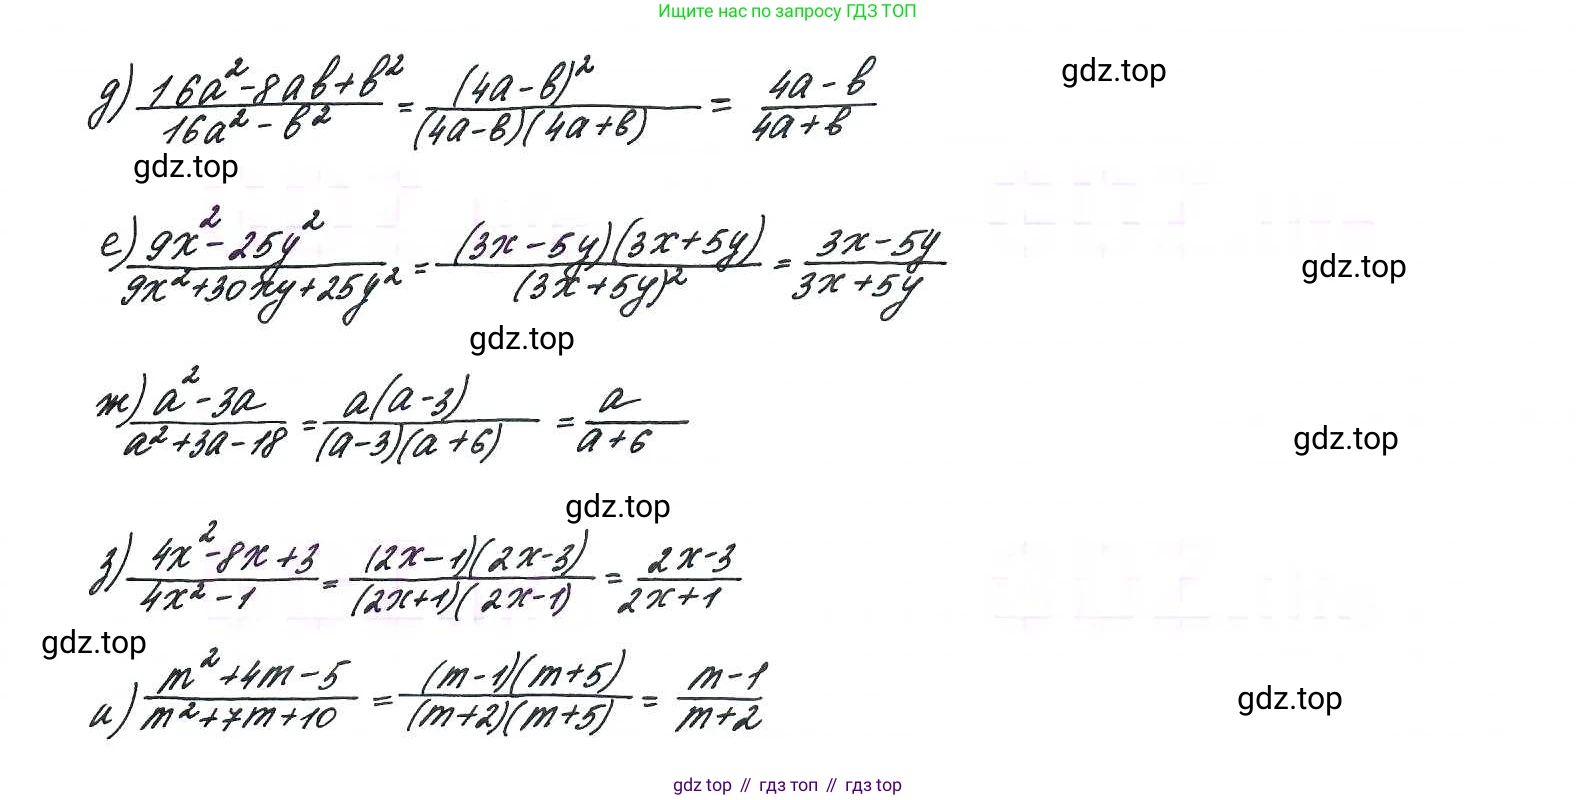 Ищите нас по запросу ГДЗ ТОП
д) (16a²-8ab+b²)/(16a²-b²) = (4a-b)²/((4a-b)(4a+b)) = (4a-b)/(4a+b)
gdz.top
gdz.top
е) (9x²-25y²)/(9x²+30xy+25y²) = ((3x-5y)(3x+5y))/(3x+5y)² = (3x-5y)/(3x+5y)
gdz.top
gdz.top
ж) (a²-3a)/(a²+3a-18) = (a(a-3))/((a-3)(a+6)) = a/(a+6)
gdz.top
gdz.top
з) (4x²-8x+3)/(4x²-1) = ((2x-1)(2x-3))/((2x+1)(2x-1)) = (2x-3)/(2x+1)
gdz.top
и) (m²+4m-5)/(m²+7m+10) = ((m-1)(m+5))/((m+2)(m+5)) = (m-1)/(m+2)
gdz.top
gdz top // гдз топ // гдз top